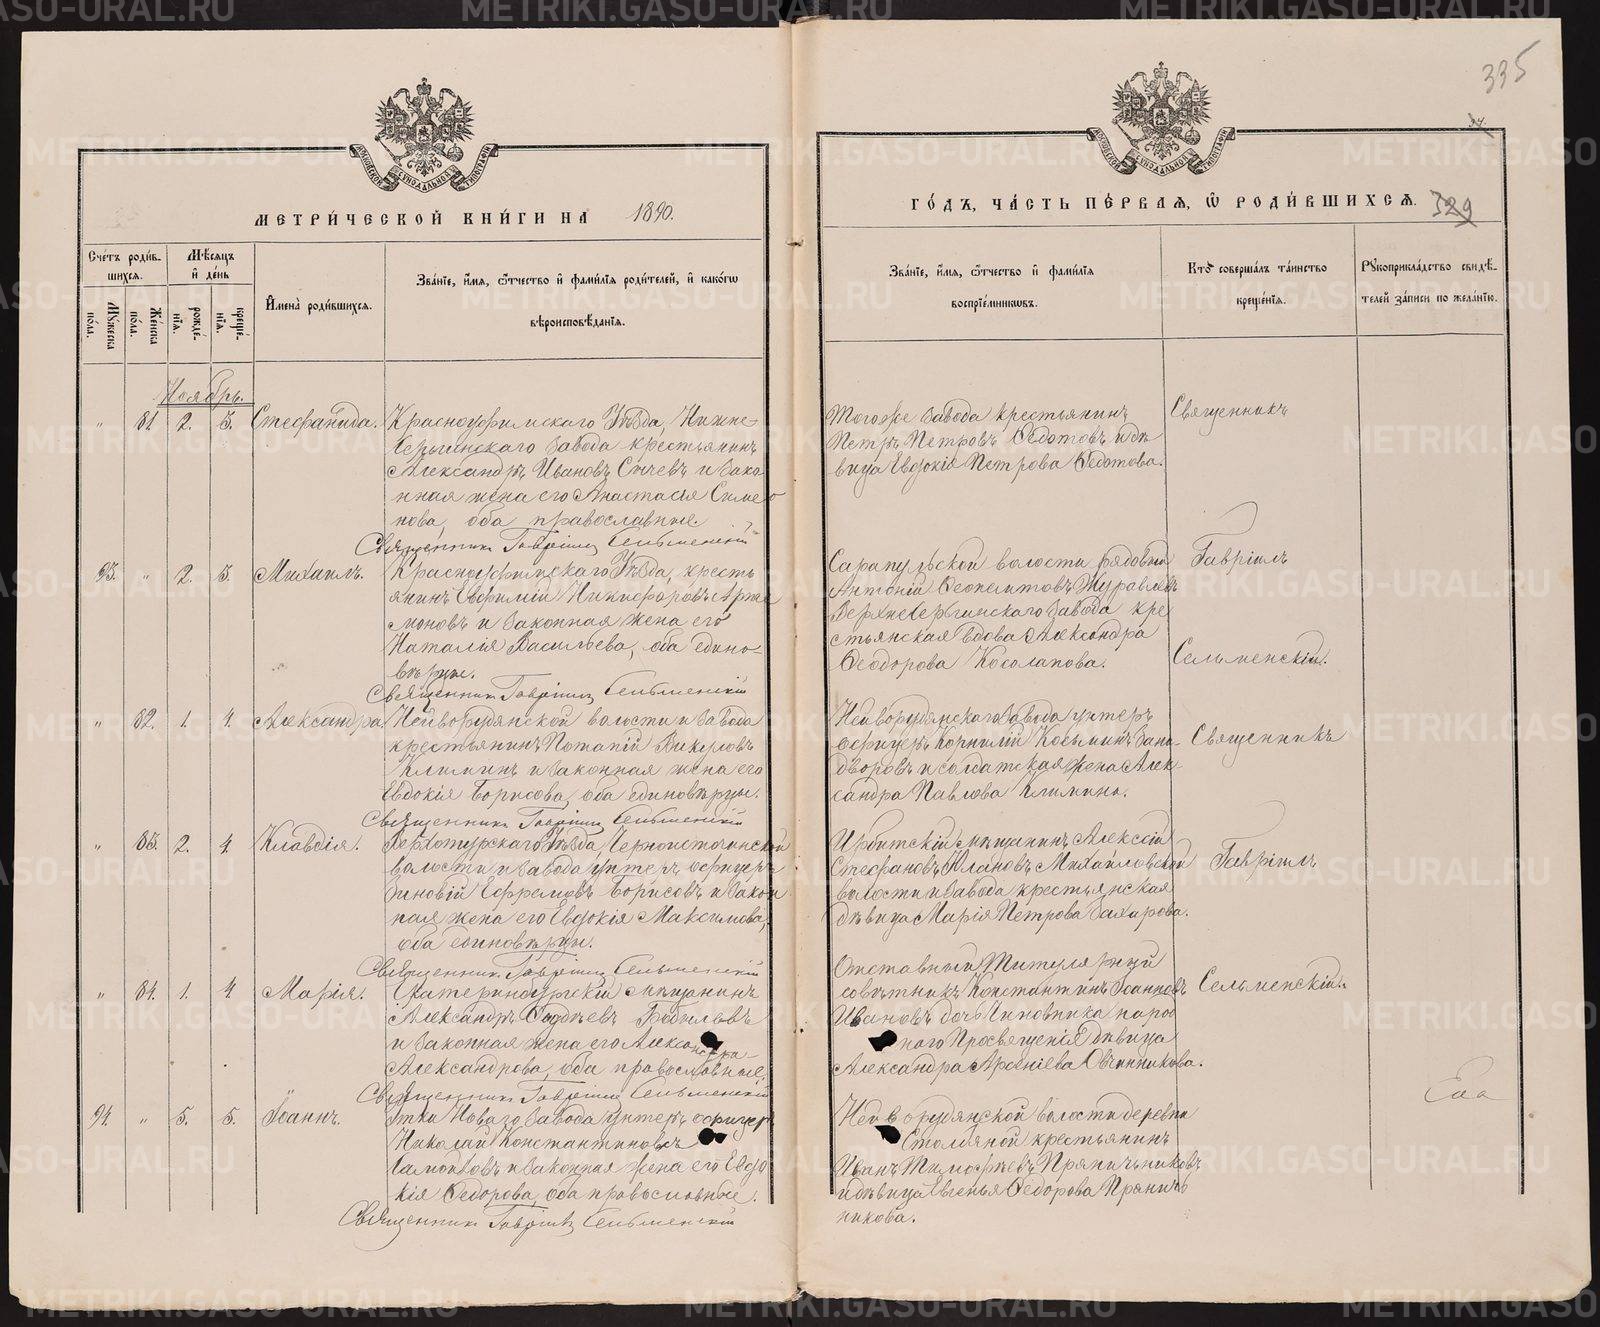 335
МЕТРИ́ЧЕСКОЙ КНИ́ГИ НА 1890.
ГО́ДЪ, ЧА́СТЬ ПЕ́РВАѦ, Ѿ РОДИ́ВШИХСѦ.
329
Сче́тъ роди́вшихсѧ.
Мѣ́сѧцъ и҆ де́нь
Му́жеска по́ла.
Же́нска по́ла.
рожде́нїѧ.
креще́нїѧ.
И҆мена̀ роди́вшихсѧ.
Зва́нїе, и҆́мѧ, ѻ҆́тчество и҆ фами́лїѧ роди́телей, и҆ како́гѡ
вѣроисповѣ́данїѧ.
Зва́нїе, и҆́мѧ, ѻ҆́тчество и҆ фами́лїѧ
воспрїе́мникѡвъ.
Кто̀ соверша́лъ та́инство
креще́нїѧ.
Рꙋкоприкла́дство свидѣ́телей за́писи по жела́нїю.
Ноябрь.
" 81. 2. 5. Стефанида.
Красноуфимскаго Уѣзда, Нижне-
Сергинскаго завода крестьянинъ
Александръ Ивановъ Сычевъ и зако
нная жена его Анастасія Симео
нова, оба православные.
Священникъ Гавріилъ Сельменскій
Тогоже завода крестьянинъ
Петръ Петровъ Ѳедотовъ и дѣ
вица Евдокія Петрова Ѳедотова.
Священникъ
93. " 2. 5. Михаилъ.
Красноуфимскаго Уѣзда, кресть
янинъ Евфимій Никифоровъ Арта
моновъ и законная жена его
Наталія Васильева, оба едино-
вѣрцы.
Священникъ Гавріилъ Сельменскій
Сарапульской волости рядовый
Антоній Ѳеопемптовъ Журавлевъ
Верхнесергинскаго завода кре
стьянская вдова Александра
Ѳеодорова Косолапова.
Гавріилъ
Сельменскій.
" 82. 1. 4. Александра
Нейворудянской волости и завода
крестьянинъ Потапій Викуловъ
Климинъ и законная жена его
Евдокія Борисова, оба единовѣрцы.
Священникъ Гавріилъ Сельменскій
Нейворудянскаго завода унтеръ
офицеръ Корнилій Косьминъ Запа
дворовъ и солдатская жена Алек-
сандра Павлова Климина.
Священникъ
" 83. 2. 4. Клавдія.
Верхотурскаго Уѣзда, Черноисточинской
волости и завода унтеръ офицеръ
Зиновій Ефремовъ Борисовъ и закон
ная жена его Евдокія Максимова,
оба единовѣрцы.
Священникъ Гавріилъ Сельменскій
Ирбитскій мѣщанинъ Алексій
Стефановъ Улановъ, Михайловской
волости и завода крестьянская
дѣвица Марія Петрова Захарова.
Гавріилъ
" 84. 1. 4 Марія.
Екатеринбургскій мѣщанинъ
Александръ
и законная жена его Алекса
ндра
Александрова, оба православные,
Священникъ Гавріилъ Сельменскій
Отставный Титулярный
совѣтникъ Константинъ Іоанновъ
Ивановъ дочь Чиновника народ
наго Просвященія дѣвица
Александра Арсеніева Овчинникова.
Сельменскій.
94. " 5. 5. Іоаннъ.
Утки Новаго завода унтеръ офицеръ
Николай Константиновъ
и законная жена его Евдо
кія Ѳедорова, оба православные.
Священникъ Гавріилъ Сельменскій
Нейворудянской волости деревни
Смоляной крестьянинъ
Иванъ Тимофѣевъ Пряничниковъ
и дѣвица Евгенья Ѳедорова Прянич
никова.